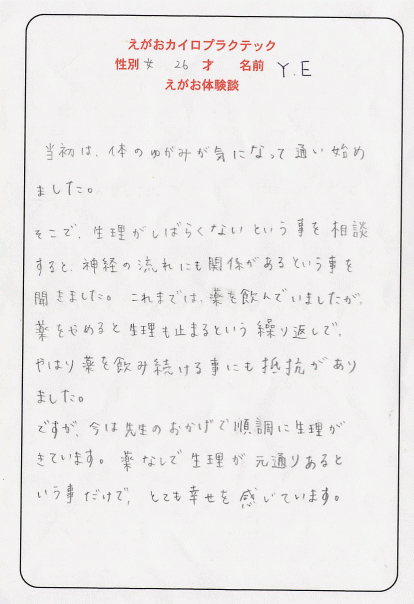 えがおカイロプラクテック
性別 女 26 才 名前 Y.E
えがお体験談
当初は、体のゆがみが気になって通い始め
ました。
そこで、生理がしばらくないという事を相談
すると、神経の流れにも関係があるという事を
聞きました。これまでは、薬を飲んでいましたが、
薬をやめると生理も止まるという繰り返しで、
やはり薬を飲み続ける事にも抵抗があり
ました。
ですが、今は先生のおかげで順調に生理が
きています。薬なしで生理が元通りあると
いう事だけで、とても幸せを感じています。